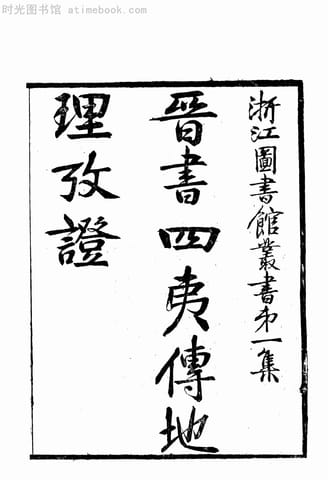 时光图书馆 atimebook.com
浙江圖書館叢書弟一集
晉書四夷傳地
理攷證